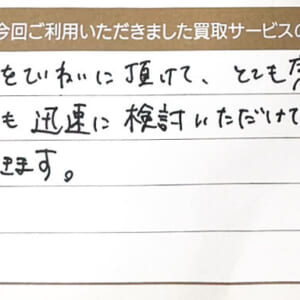 今回ご利用いただきました買取サービスの
をていねいに頂けて、とても
も迅速に検討いただけて
きます。